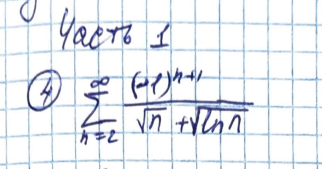 Часть 1
④ ∑_{n=2}^{∞} (-1)^{n+1} / (√n + √(ln n))